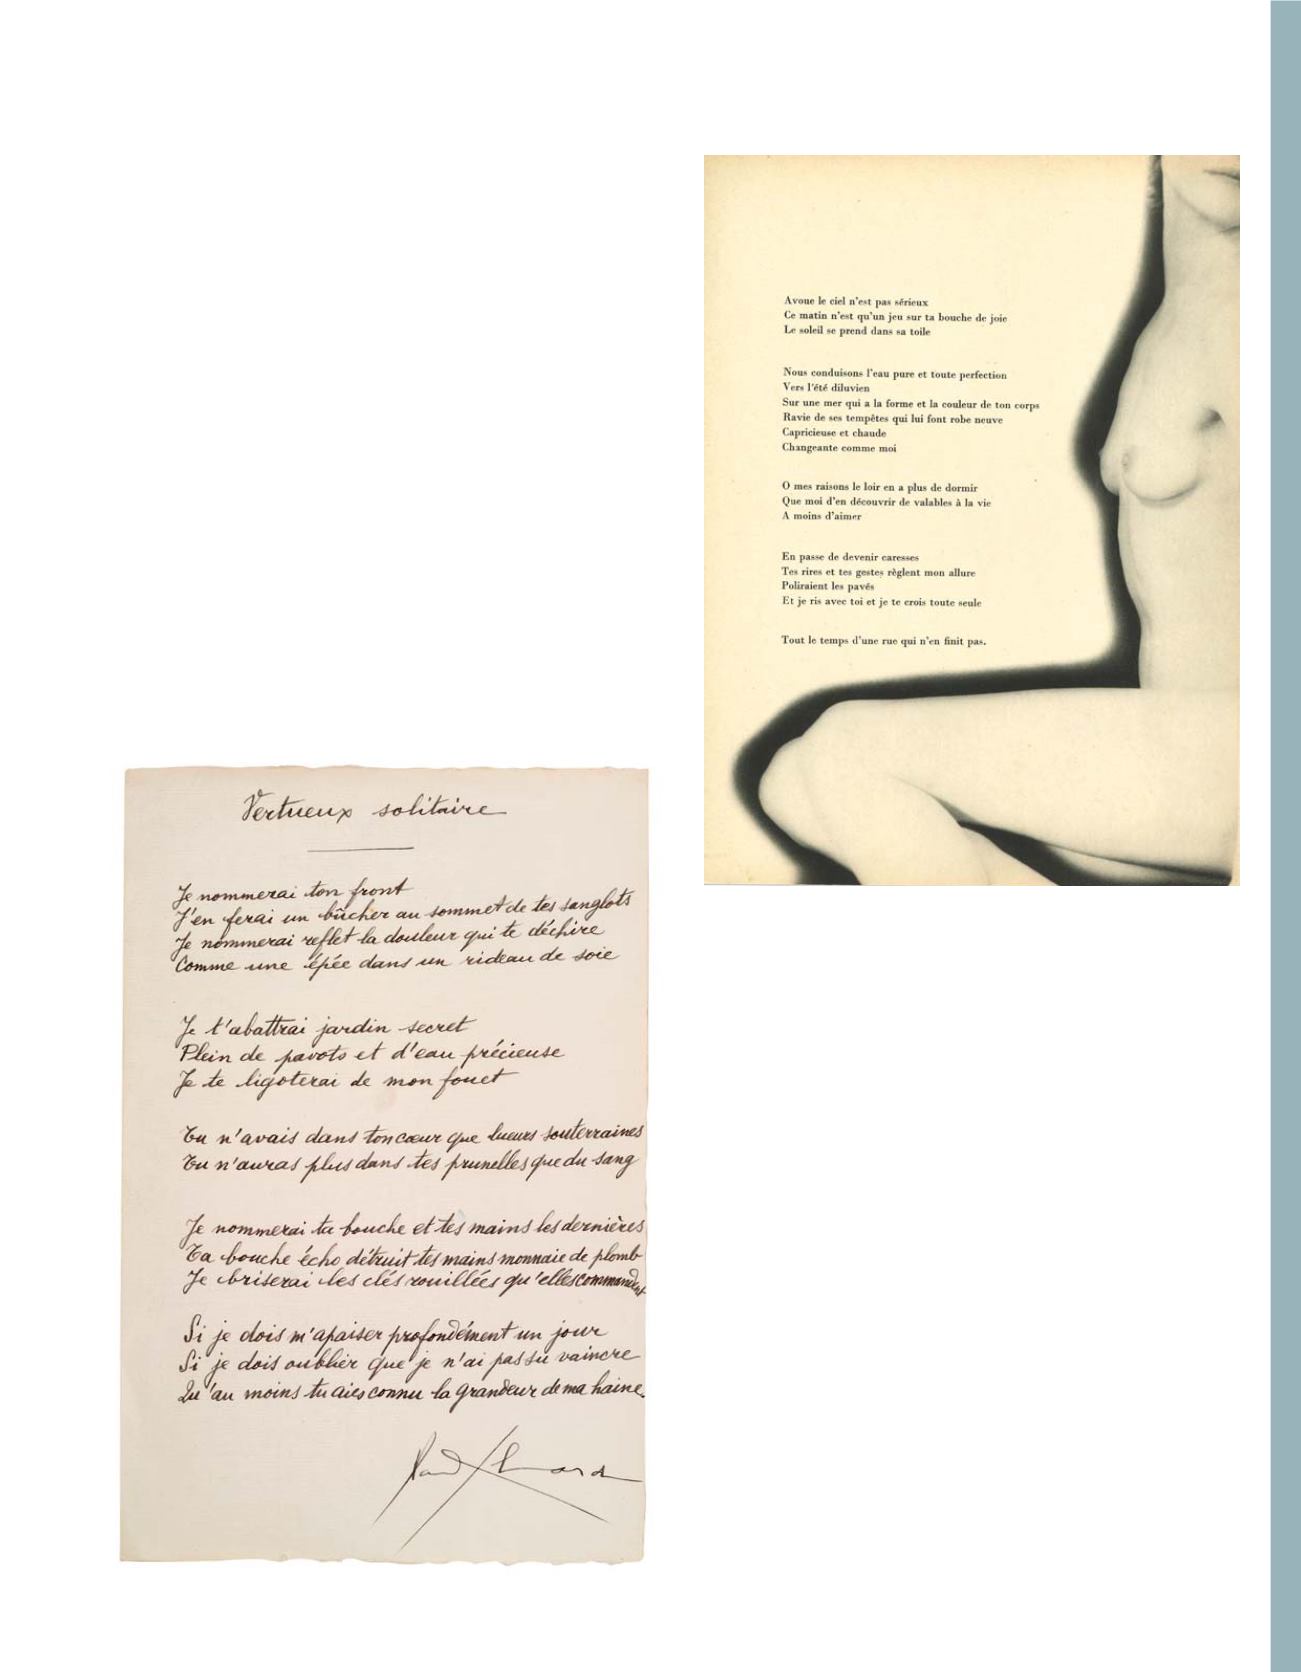 Avoue le ciel n'est pas sérieux
Ce matin n'est qu'un jeu sur ta bouche de joie
Le soleil se prend dans sa toile
Nous conduisons l'eau pure et toute perfection
Vers l'été diluvien
Sur une mer qui a la forme et la couleur de ton corps
Ravie de ses tempêtes qui lui font robe neuve
Capricieuse et chaude
Changeante comme moi
O mes raisons le loir en a plus de dormir
Que moi d'en découvrir de valables à la vie
A moins d'aimer
En passe de devenir caresses
Tes rires et tes gestes règlent mon allure
Poliraient les pavés
Et je ris avec toi et je te crois toute seule
Tout le temps d'une rue qui n'en finit pas.
Vertueux solitaire
Je nommerai ton front
J'en ferai un bûcher au sommet de tes sanglots
Je nommerai reflet la douleur qui te déchire
Comme une épée dans un rideau de soie
Je t'abattrai jardin secret
Plein de pavots et d'eau précieuse
Je te ligoterai de mon fouet
Tu n'avais dans ton cœur que lueurs souterraines
Tu n'auras plus dans tes prunelles que du sang
Je nommerai ta bouche et tes mains les dernières
Ta bouche écho détruit tes mains monnaie de plomb
Je briserai les clés rouillées qu'elles commandent
Si je dois m'apaiser profondément un jour
Si je dois oublier que je n'ai pas su vaincre
Qu'au moins tu aies connu la grandeur de ma haine.
Paul Eluard